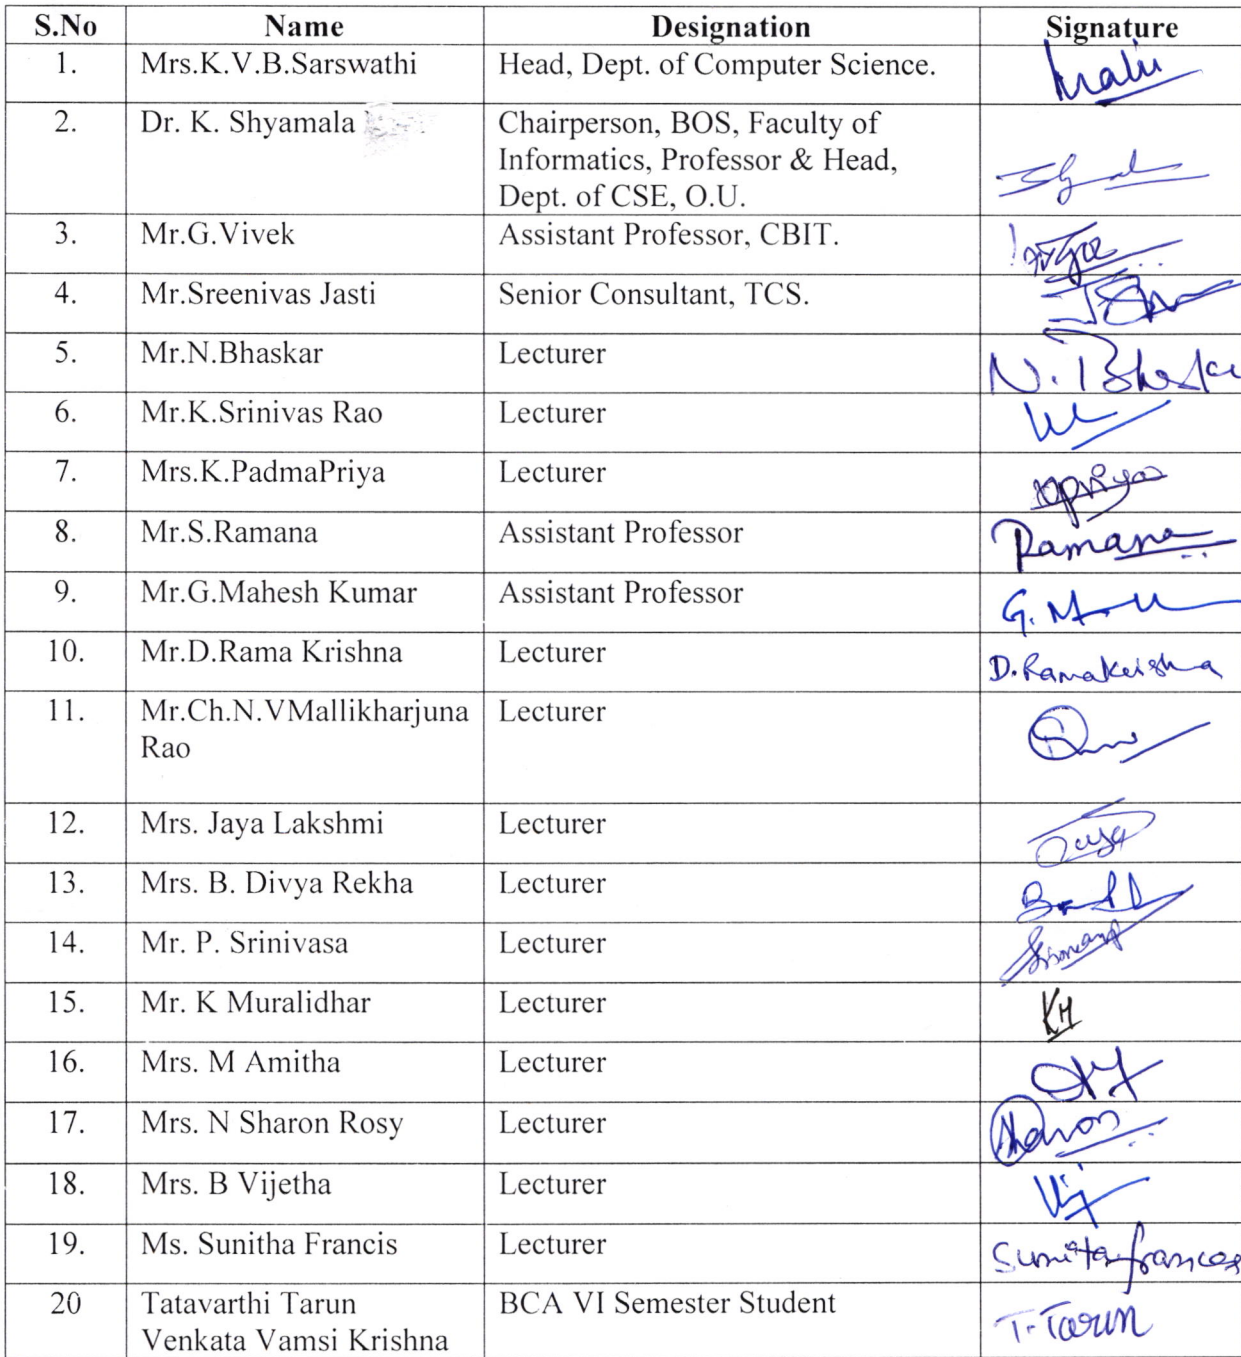 S.No Name Designation Signature
1. Mrs.K.V.B.Sarswathi Head, Dept. of Computer Science.
2. Dr. K. Shyamala Chairperson, BOS, Faculty of
Informatics, Professor & Head,
Dept. of CSE, O.U.
3. Mr.G.Vivek Assistant Professor, CBIT.
4. Mr.Sreenivas Jasti Senior Consultant, TCS.
5. Mr.N.Bhaskar Lecturer
6. Mr.K.Srinivas Rao Lecturer
7. Mrs.K.PadmaPriya Lecturer
8. Mr.S.Ramana Assistant Professor Ramana
9. Mr.G.Mahesh Kumar Assistant Professor
10. Mr.D.Rama Krishna Lecturer D.Ramakrishna
11. Mr.Ch.N.VMallikharjuna Lecturer
Rao
12. Mrs. Jaya Lakshmi Lecturer
13. Mrs. B. Divya Rekha Lecturer
14. Mr. P. Srinivasa Lecturer
15. Mr. K Muralidhar Lecturer KM
16. Mrs. M Amitha Lecturer
17. Mrs. N Sharon Rosy Lecturer Sharon
18. Mrs. B Vijetha Lecturer
19. Ms. Sunitha Francis Lecturer
20 Tatavarthi Tarun BCA VI Semester Student T. Tarun
Venkata Vamsi Krishna